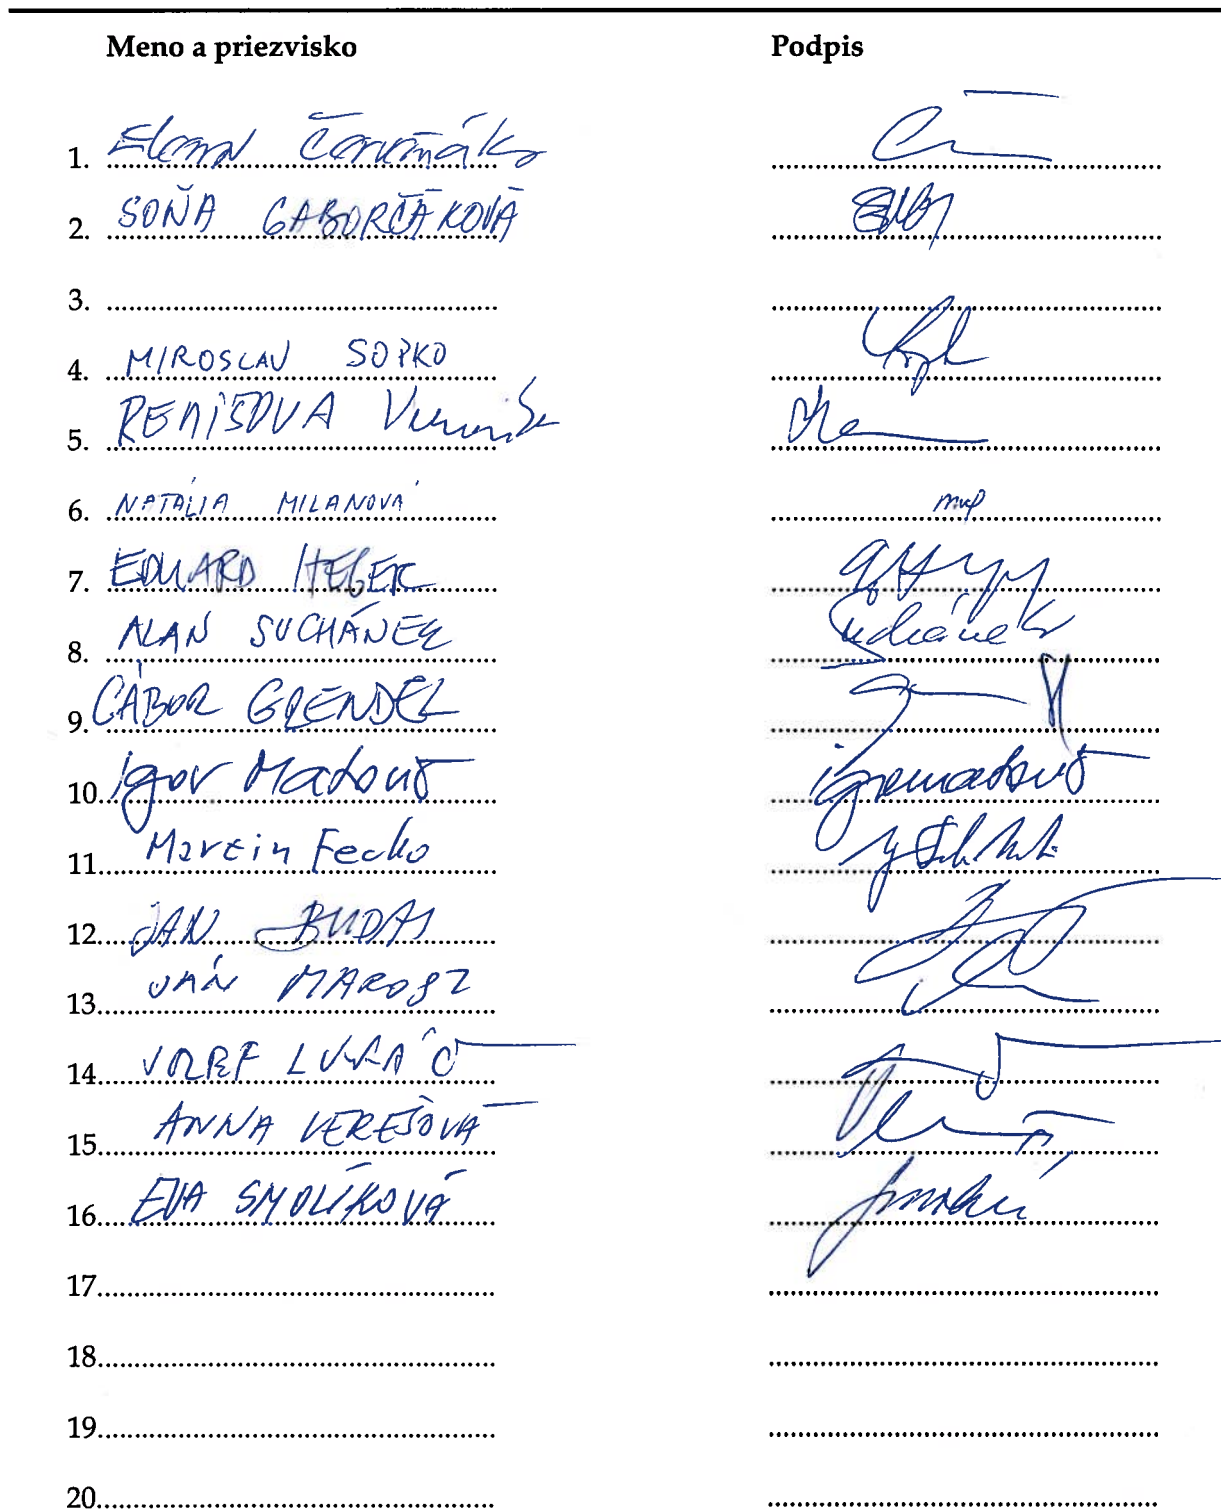 Meno a priezvisko Podpis
1. Elena Červeňáko
2. SOŇA GABORČÁKOVÁ
3.
4. MIROSLAV SOPKO
5. REMIŠOVA Veronika
6. NATÁLIA MILANOVÁ
7. EDUARD HEGER
8. ALAN SUCHÁNEK Suchánek
9. GÁBOR GRENDEL
10. Igor Matovič igormatovič
11. Martin Fecko
12. JÁN BUDAJ
13. JÁN MAROSZ
14. JOZEF LUKÁČ
15. ANNA VEREŠOVÁ
16. EVA SMOLÍKOVÁ
17.
18.
19.
20.